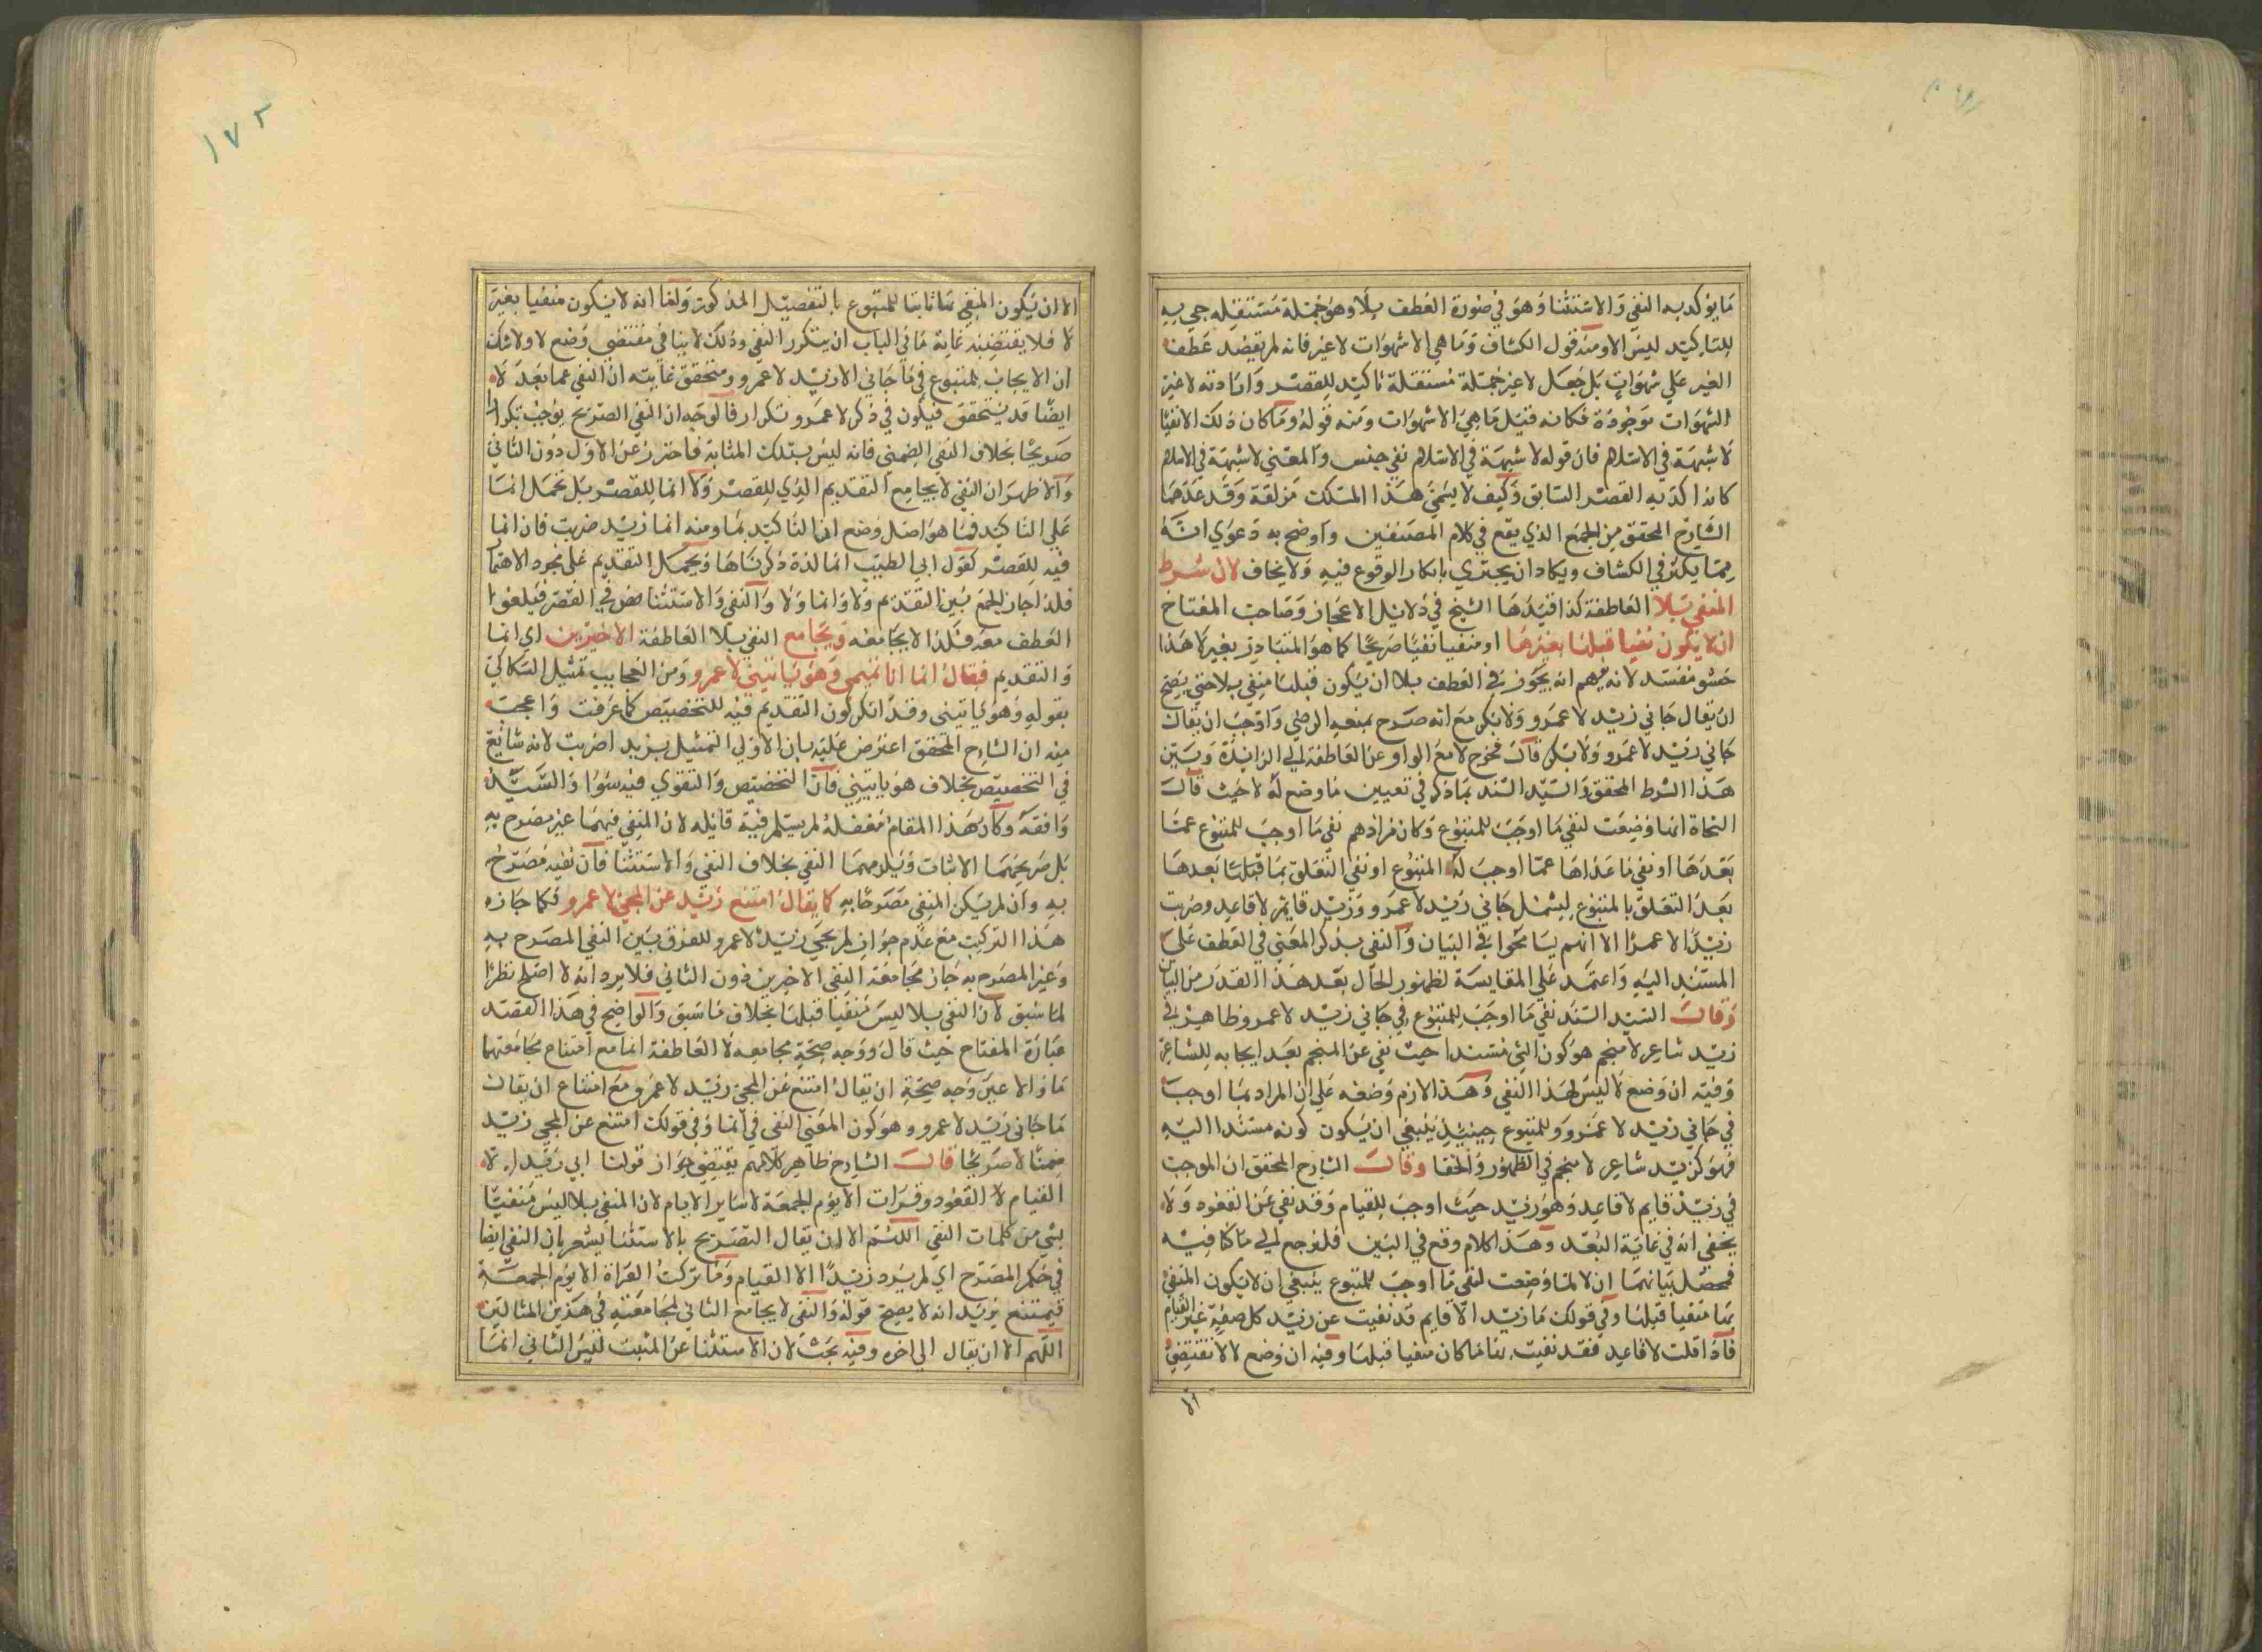 ما يؤكد به النفي والاستثنا وهو في صورة العطف بلا وهو جملة مستقله جي به
للتاكيد ليس الا ومنه قول الكشاف وما هي الا شهوات لا غير فانه لم يقصد عطف
الغير علي شهوات بل جعل لا غير جملة مستقلة تاكيد للقصر وافادته لا غير
الشهوات موجودة فكانه قيل ما هي الا شهوات ومنه قوله وما كان ذلك الا نفيا
لا شبهة في الاسلام فان قوله لا شبهة في الاسلام نفي جنس والمعني لا شبهة في الاسلام
كانه اكد به القصر السابق وكيف لا يسمي هذا المسلك مزلقة وقد عدهما
الشارح المحقق من الجمع الذي يقع في كلام المصنفين واوضح به دعوي انه
مما يكثر في الكشاف ويكاد ان يجتري بانكار الوقوع فيه ولا يخاف لان شرط
المنفي بلا العاطفة كذا قيدها الشيخ في دلايل الاعجاز وصاحب المفتاح
ان لا يكون منفيا قبلها بغيرها او منفيا نفيا صريحا كما هو المتبادر بغير لا هذا
حشو مفسد لانه يوهم انه يجوز في العطف بلا ان يكون قبلها منفي بلا حتي يصح
ان يقال جاني زيد لا عمرو ولا بكر مع انه صرح بمنعه الرضي واوجب ان يقال
جاني زيد لا عمرو ولا بكر قال فخرج لا مع الواو عن العاطفة الي الزايدة وبين
هذا الشرط المحقق والسيد السند بما ذكر في تعيين ما وضع له لا حيث قال
النحاة انما وضعت لنفي ما اوجب للمتبوع وكان مرادهم نفي ما اوجب للمتبوع عما
بعدها او نفي ما عداها عما اوجب له المتبوع او نفي التعلق بما قبلها بعدها
بعد التعلق بالمتبوع ليشمل جاني زيد لا عمرو وزيد قايم لا قاعد وضربت
زيدا لا عمرا الا انهم يسامحوا في البيان والنفي بذكر المعني في العطف علي
المسند اليه واعتمد علي المقايسة لظهور الحال بعد هذا القدر من البيان
وقال السيد السند نفي ما اوجب للمتبوع في جاني زيد لا عمرو ظاهر في
زيد شاعر لا منجم هو كون الشي مسندا حيث نفي عن المنجم بعد ايجابه للشاعر
وفيه ان وضع لا ليس لهذا النفي وهذا لازم وضعه علي ان المراد بما اوجب
في جاني زيد لا عمرو وللمتبوع حينيذ ينبغي ان يكون كونه مسندا اليه
فهو كزيد شاعر لا منجم في الظهور والخفا وقال الشارح المحقق ان الموجب
في زيد قايم لا قاعد وهو زيد حيث اوجب للقيام وقد نفي عن القعود ولا
يخفي انه في غاية البعد وهذا كلام وقع في البين فلنرجع الي ما كنا فيه
فحصل بيانهما ان لا لما وضعت لنفي ما اوجب للمتبوع ينبغي ان لا يكون المنفي
بها منفيا قبلها وفي قولك ما زيد الا قايم قد نفيت عن زيد كل صفة غير القيام
فاذا قلت لا قاعد فقد نفيت بها ما كان منفيا قبلها وفيه ان وضع لا لا تقتضي
الا
١٧٢
الا ان يكون المنفي بها ثابتا للمتبوع بالتفصيل المذكور ولما انه لا يكون منفيا بغير
لا فلا يقتضيه غاية ما في الباب ان يتكرر النفي وذلك لا ينافي مقتضي وضع لا ولا شك
ان الايجاب للمتبوع في ما جاني الا زيد لا عمرو ومتحقق غايته ان النفي عما بعد لا
ايضا قد يتحقق فيكون في ذكر لا عمرو تكرار فالوجه ان النفي الصريح يوجب تكرارا
صريحا بخلاف النفي الضمني فانه ليس بتلك المثابة فاحترز عن الاول دون الثاني
والاظهر ان النفي لا يجامع التقديم الذي للقصر ولا انما للقصر بل تحمل انما
علي التاكيد فيما هو اصل وضع ان التاكيد بما ومنه انما زيد ضربت فان انما
فيه للقصر كقول ابي الطيب انما لذة ذكرناها ويحمل التقديم علي مجرد الاهتما
فلذا جاز الجمع بين التقديم ولا وانما ولا والنفي والاستثنا نص في القصر فيلغوا
العطف معه فلذا لا يجامعه ويجامع النفي بلا العاطفة الاخيرين اي انما
والتقديم فيقال انما انا تميمي وهو ياتيني لا عمرو ومن العجايب تمثيل السكاكي
بقوله وهو ياتيني وقد انكر كون التقديم فيه للتخصيص كما عرفت واعجب
منه ان الشارح المحقق اعترض عليه بان الاولي التمثيل بزيد اضربت لانه شايع
في التخصيص بخلاف هو ياتيني فان التخصيص والتقوي فيه سوا والسيد
وافقه وكان هذا المقام مغفلة لم يسلم فيه قايله لان المنفي فيهما غير مصرح به
بل صريحهما الاثبات ويلزمهما النفي بخلاف النفي والاستثنا فان نفيه مصرح
به وان لم يكن المنفي مصرحا به كما يقال امتنع زيد عن المجي لا عمرو فكما جاز
هذا التركيب مع عدم جواز لم يجي زيد لا عمرو للفرق بين النفي المصرح به
وغير المصرح به جاز مجامعة النفي الاخيرين دون الثاني فلا يرد انه لا اصلح نظرا
لما سبق لان النفي بلا ليس منفيا قبلها بخلاف ما سبق والواضح في هذا القصد
عبارة المفتاح حيث قال ووجه صحة مجامعة لا العاطفة انما مع امتناع مجامعتها
ما والا عين وجه صحة ان يقال امتنع عن المجي زيد لا عمرو مع امتناع ان يقال
ما جاني زيد لا عمرو وهو كون المعني النفي في انما وفي قولك امتنع عن المجي زيد
ضمنا لا صريحا قال الشارح ظاهر كلامهم يقتضي جواز قولنا ابي زيد الا
القيام لا القعود وقرات الا يوم الجمعة لا ساير الايام لان المنفي بلا ليس منفيا
بشي من كلمات النفي اللهم الا ان يقال التصريح بالاستثنا يشعر بان النفي ايضا
في حكم المصرح اي لم يرد زيد الا القيام وما تركت القراة الا يوم الجمعة
فيمتنع يريد انه لا يصح قوله والنفي لا يجامع الثاني لمجامعته في هذين المثالين
اللهم الا ان يقال الي اخره وفيه بحث لان الاستثنا عن المثبت ليس الثاني انما